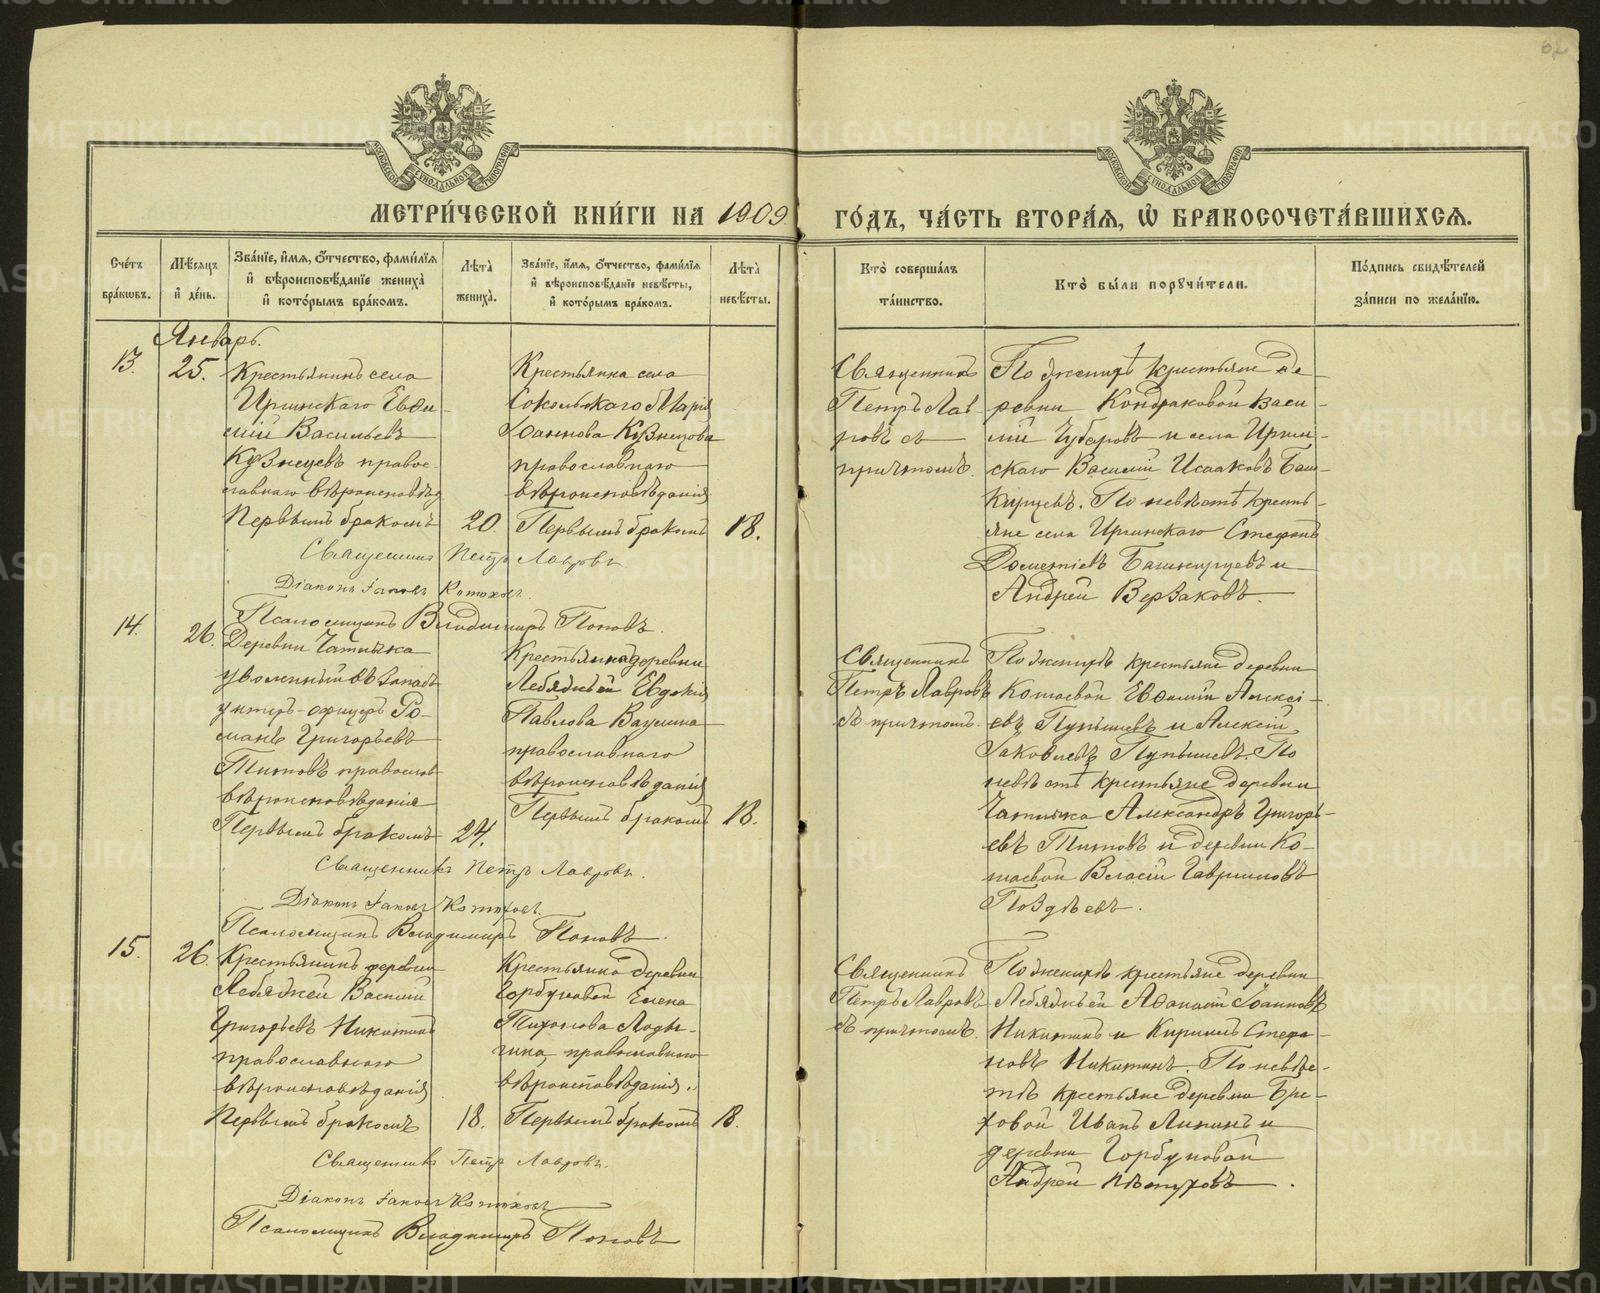 МЕТРИ́ЧЕСКОЙ КНИ́ГИ НА 1909 ГО́ДЪ, ЧА́СТЬ ВТОРА́Я, Ѡ҆ БРАКОСОЧЕТА́ВШИХСЯ.
Сче́тъ бра́кѡвъ.
Мѣ́сяцъ и҆ де́нь.
Зва́нїе, и҆́мя, ѻ҆́тчество, фами́лїя и҆ вѣроисповѣ́данїе жениха̀ и҆ кото́рымъ бра́комъ.
Лѣ́та жениха̀.
Зва́нїе, и҆́мя, ѻ҆́тчество, фами́лїя и҆ вѣроисповѣ́данїе невѣ́сты, и҆ кото́рымъ бра́комъ.
Лѣ́та невѣ́сты.
Кто̀ соверша́лъ та́инство.
Кто̀ бы́ли порꙋчи́тели.
По́дпись свидѣ́телей за́писи по жела́нїю.
Январь.
13.
25.
Крестьянинъ села
Иргинскаго Евѳи-
мій Васильевъ
Кузнецевъ правос-
лавнаго вѣроисповѣд
Первымъ бракомъ
20.
Крестьянка села
Сокольскаго Марія
Іоаннова Кузнецова
православнаго
вѣроисповѣданія
Первымъ бракомъ
18.
Священникъ
Петръ Лав
ровъ съ
причтомъ.
По женихѣ крестьяне де
ревни Кондраковой Васи-
лій Чубаровъ и села Иргин-
скаго Василій Исааковъ Баш-
кирцевъ. По невѣстѣ кресть-
яне села Иргинскаго Стефанъ
Дометіевъ Башкирцевъ и
Андрей Верзаковъ.
Священникъ Петръ Лавровъ
Діаконъ Іаковъ Котоховъ.
Псаломщикъ Владимиръ Поповъ.
14.
26.
Деревни Чатлыка
уволенный въ запасъ
унтеръ-офицеръ Ро-
манъ Григорьевъ
Титовъ православ
вѣроисповѣданія
Первымъ бракомъ
24.
Крестьянка деревни
Лебяжьей Евдокія
Павлова Ваулина
православнаго
вѣроисповѣданія
Первымъ бракомъ
18.
Священникъ
Петръ Лавровъ
съ причтомъ.
По женихѣ крестьяне деревни
Котаевой Евѳимій Алексі-
евъ Пупышевъ и Алексій
Іаковлевъ Пупышевъ. По
невѣстѣ крестьяне деревни
Чатлыка Александръ Григорь-
евъ Титовъ и деревни Ко-
таевой Власій Гавриловъ
Поздѣевъ.
Священникъ Петръ Лавровъ.
Діаконъ Іаковъ Котоховъ.
Псаломщикъ Владимиръ Поповъ.
15.
26.
Крестьянинъ деревни
Лебяжьей Василій
Григорьевъ Никитинъ
православнаго
вѣроисповѣданія
Первымъ бракомъ
18.
Крестьянка деревни
Горбуновой Елена
Тихонова Лады-
гина, православнаго
вѣроисповѣданія.
Первымъ бракомъ
18.
Священникъ
Петръ Лавровъ
съ причтомъ.
По женихѣ крестьяне деревни
Лебяжьей Аѳанасій Іоанновъ
Никитинъ и Кириллъ Стефа-
новъ Никитинъ. По невѣс-
тѣ крестьяне деревни Бре-
ховой Иванъ Липинъ и
деревни Горбуновой
Андрей Пѣтуховъ.
Священникъ Петръ Лавровъ.
Діаконъ Іаковъ Котоховъ
Псаломщикъ Владимиръ Поповъ
METRIKI.GASO-URAL.RU